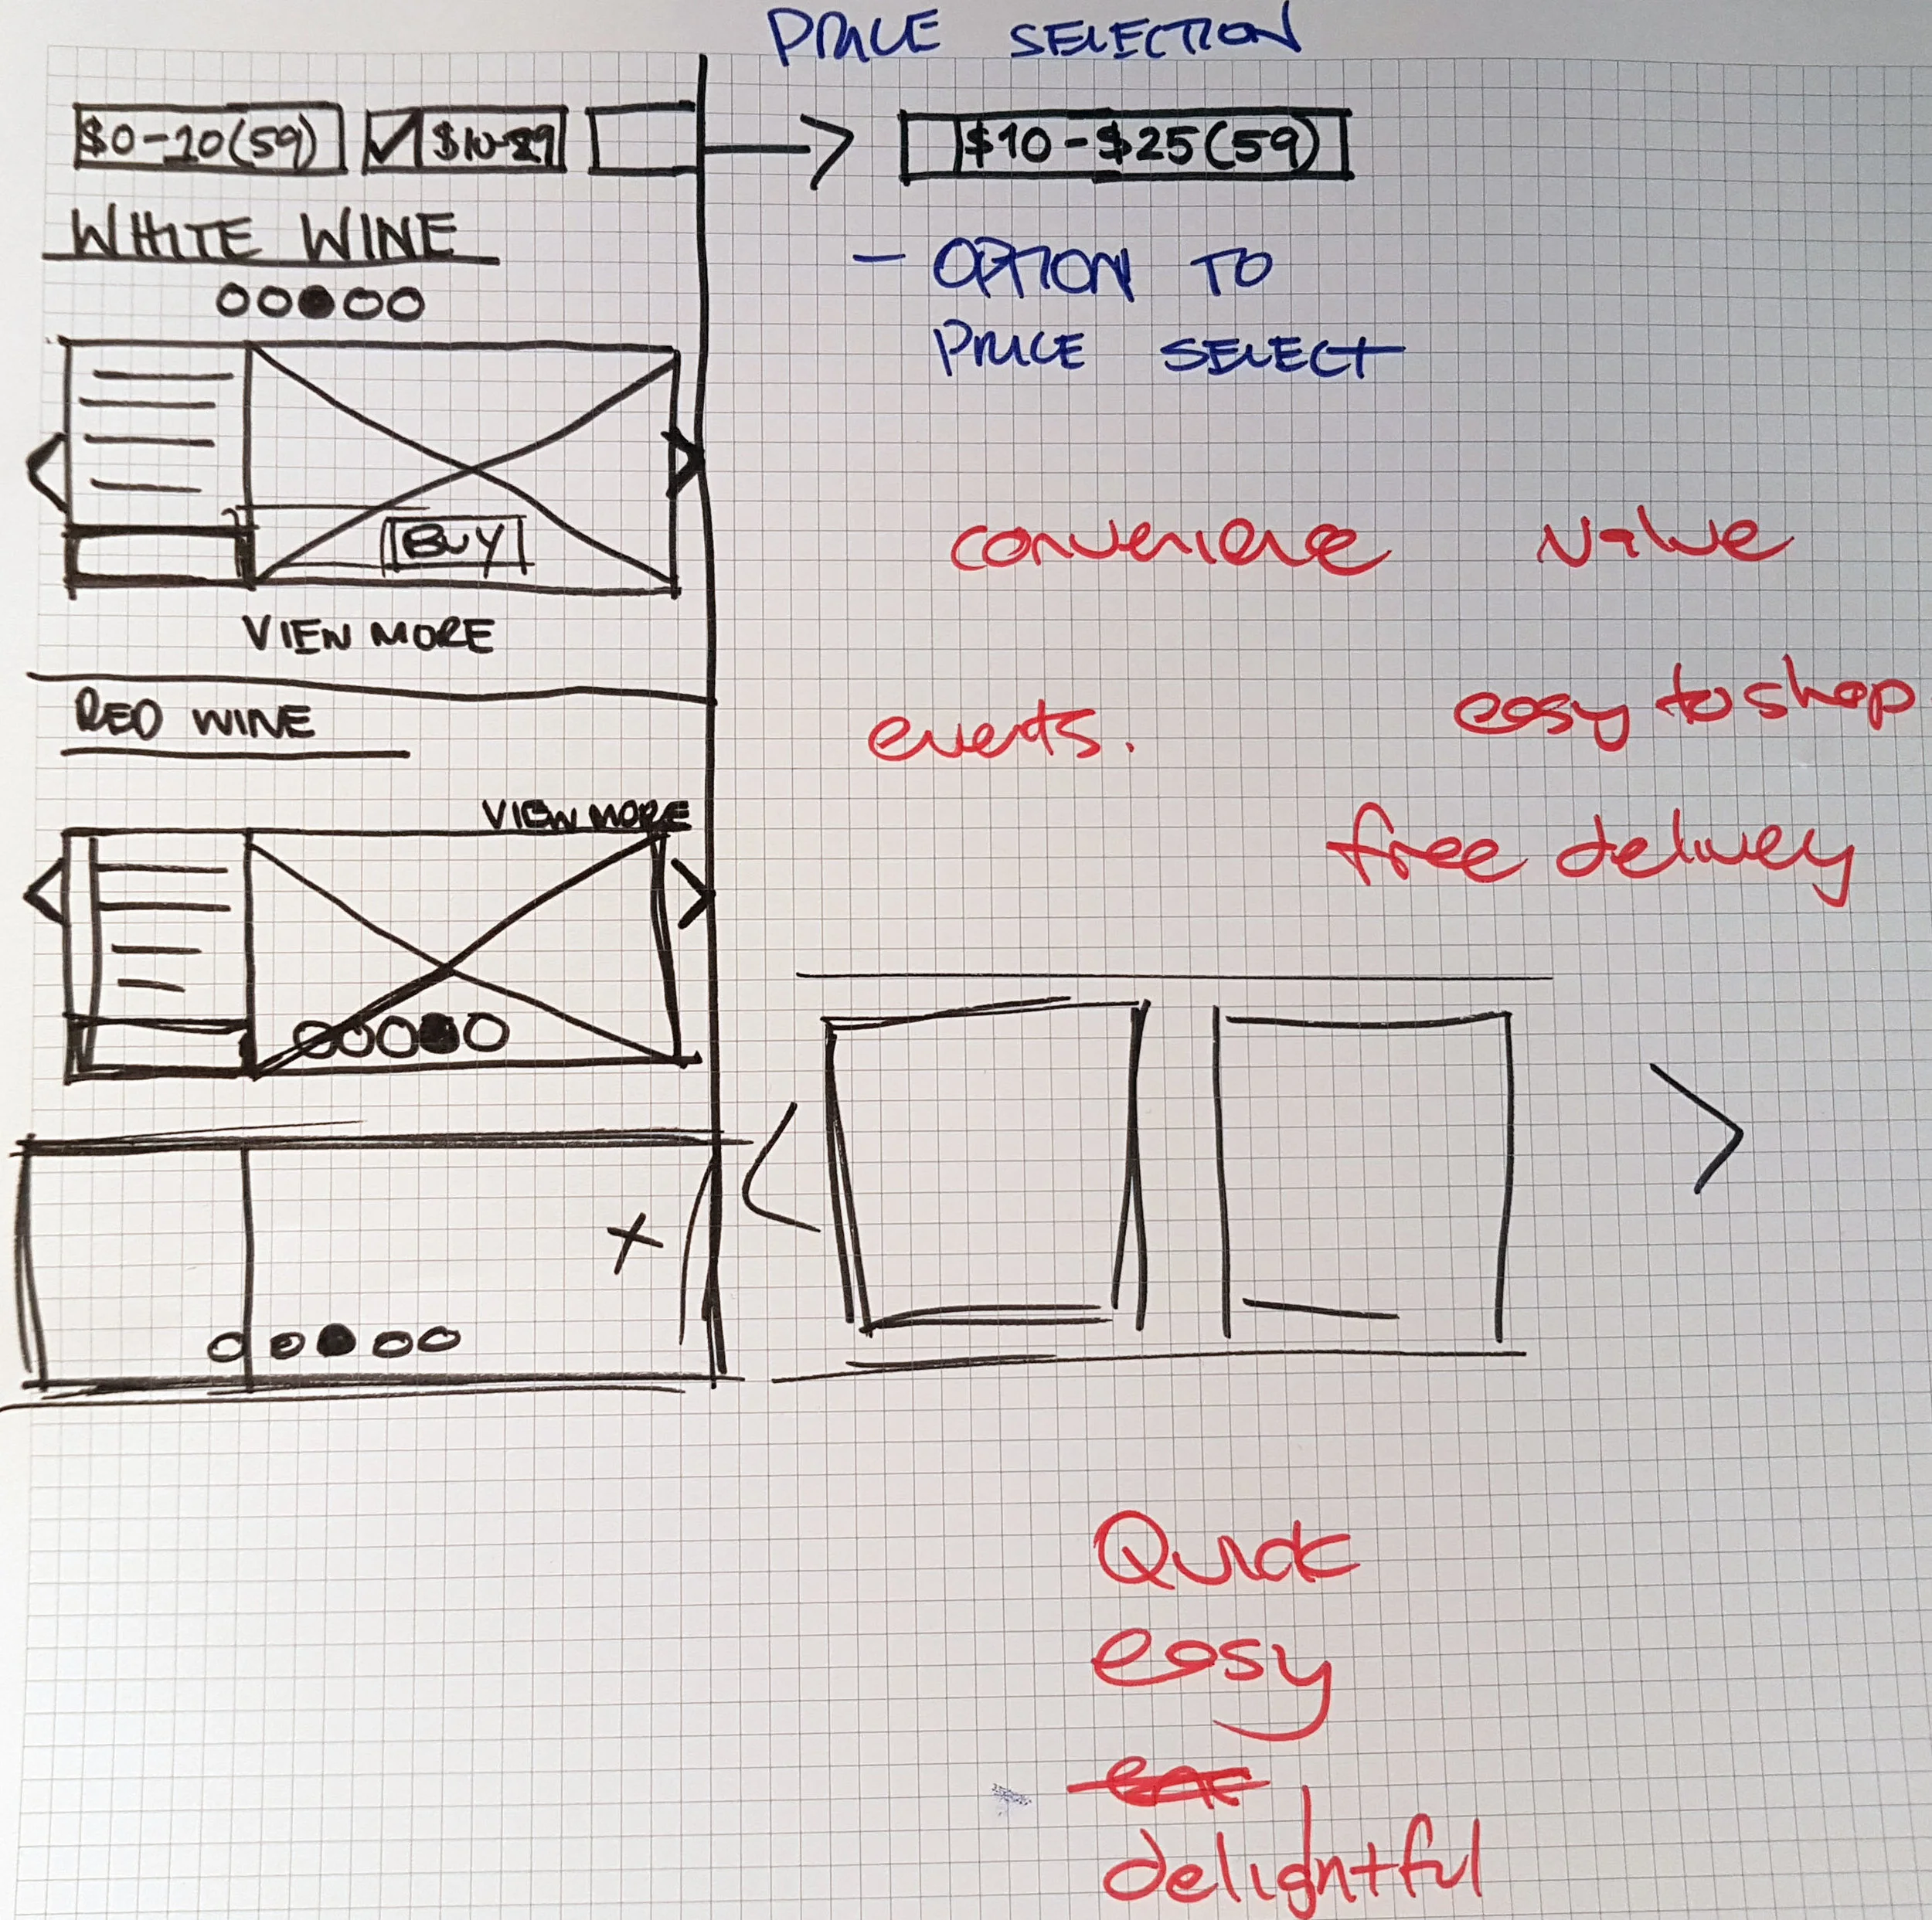 PRICE SELECTION
$0-20(59)
$10-$25(59)
WHITE WINE
- OPTION TO
PRICE SELECT
BUY
VIEW MORE
convenience value
RED WINE
events.
easy to shop
VIEW MORE
free delivery
Quick
easy
delightful